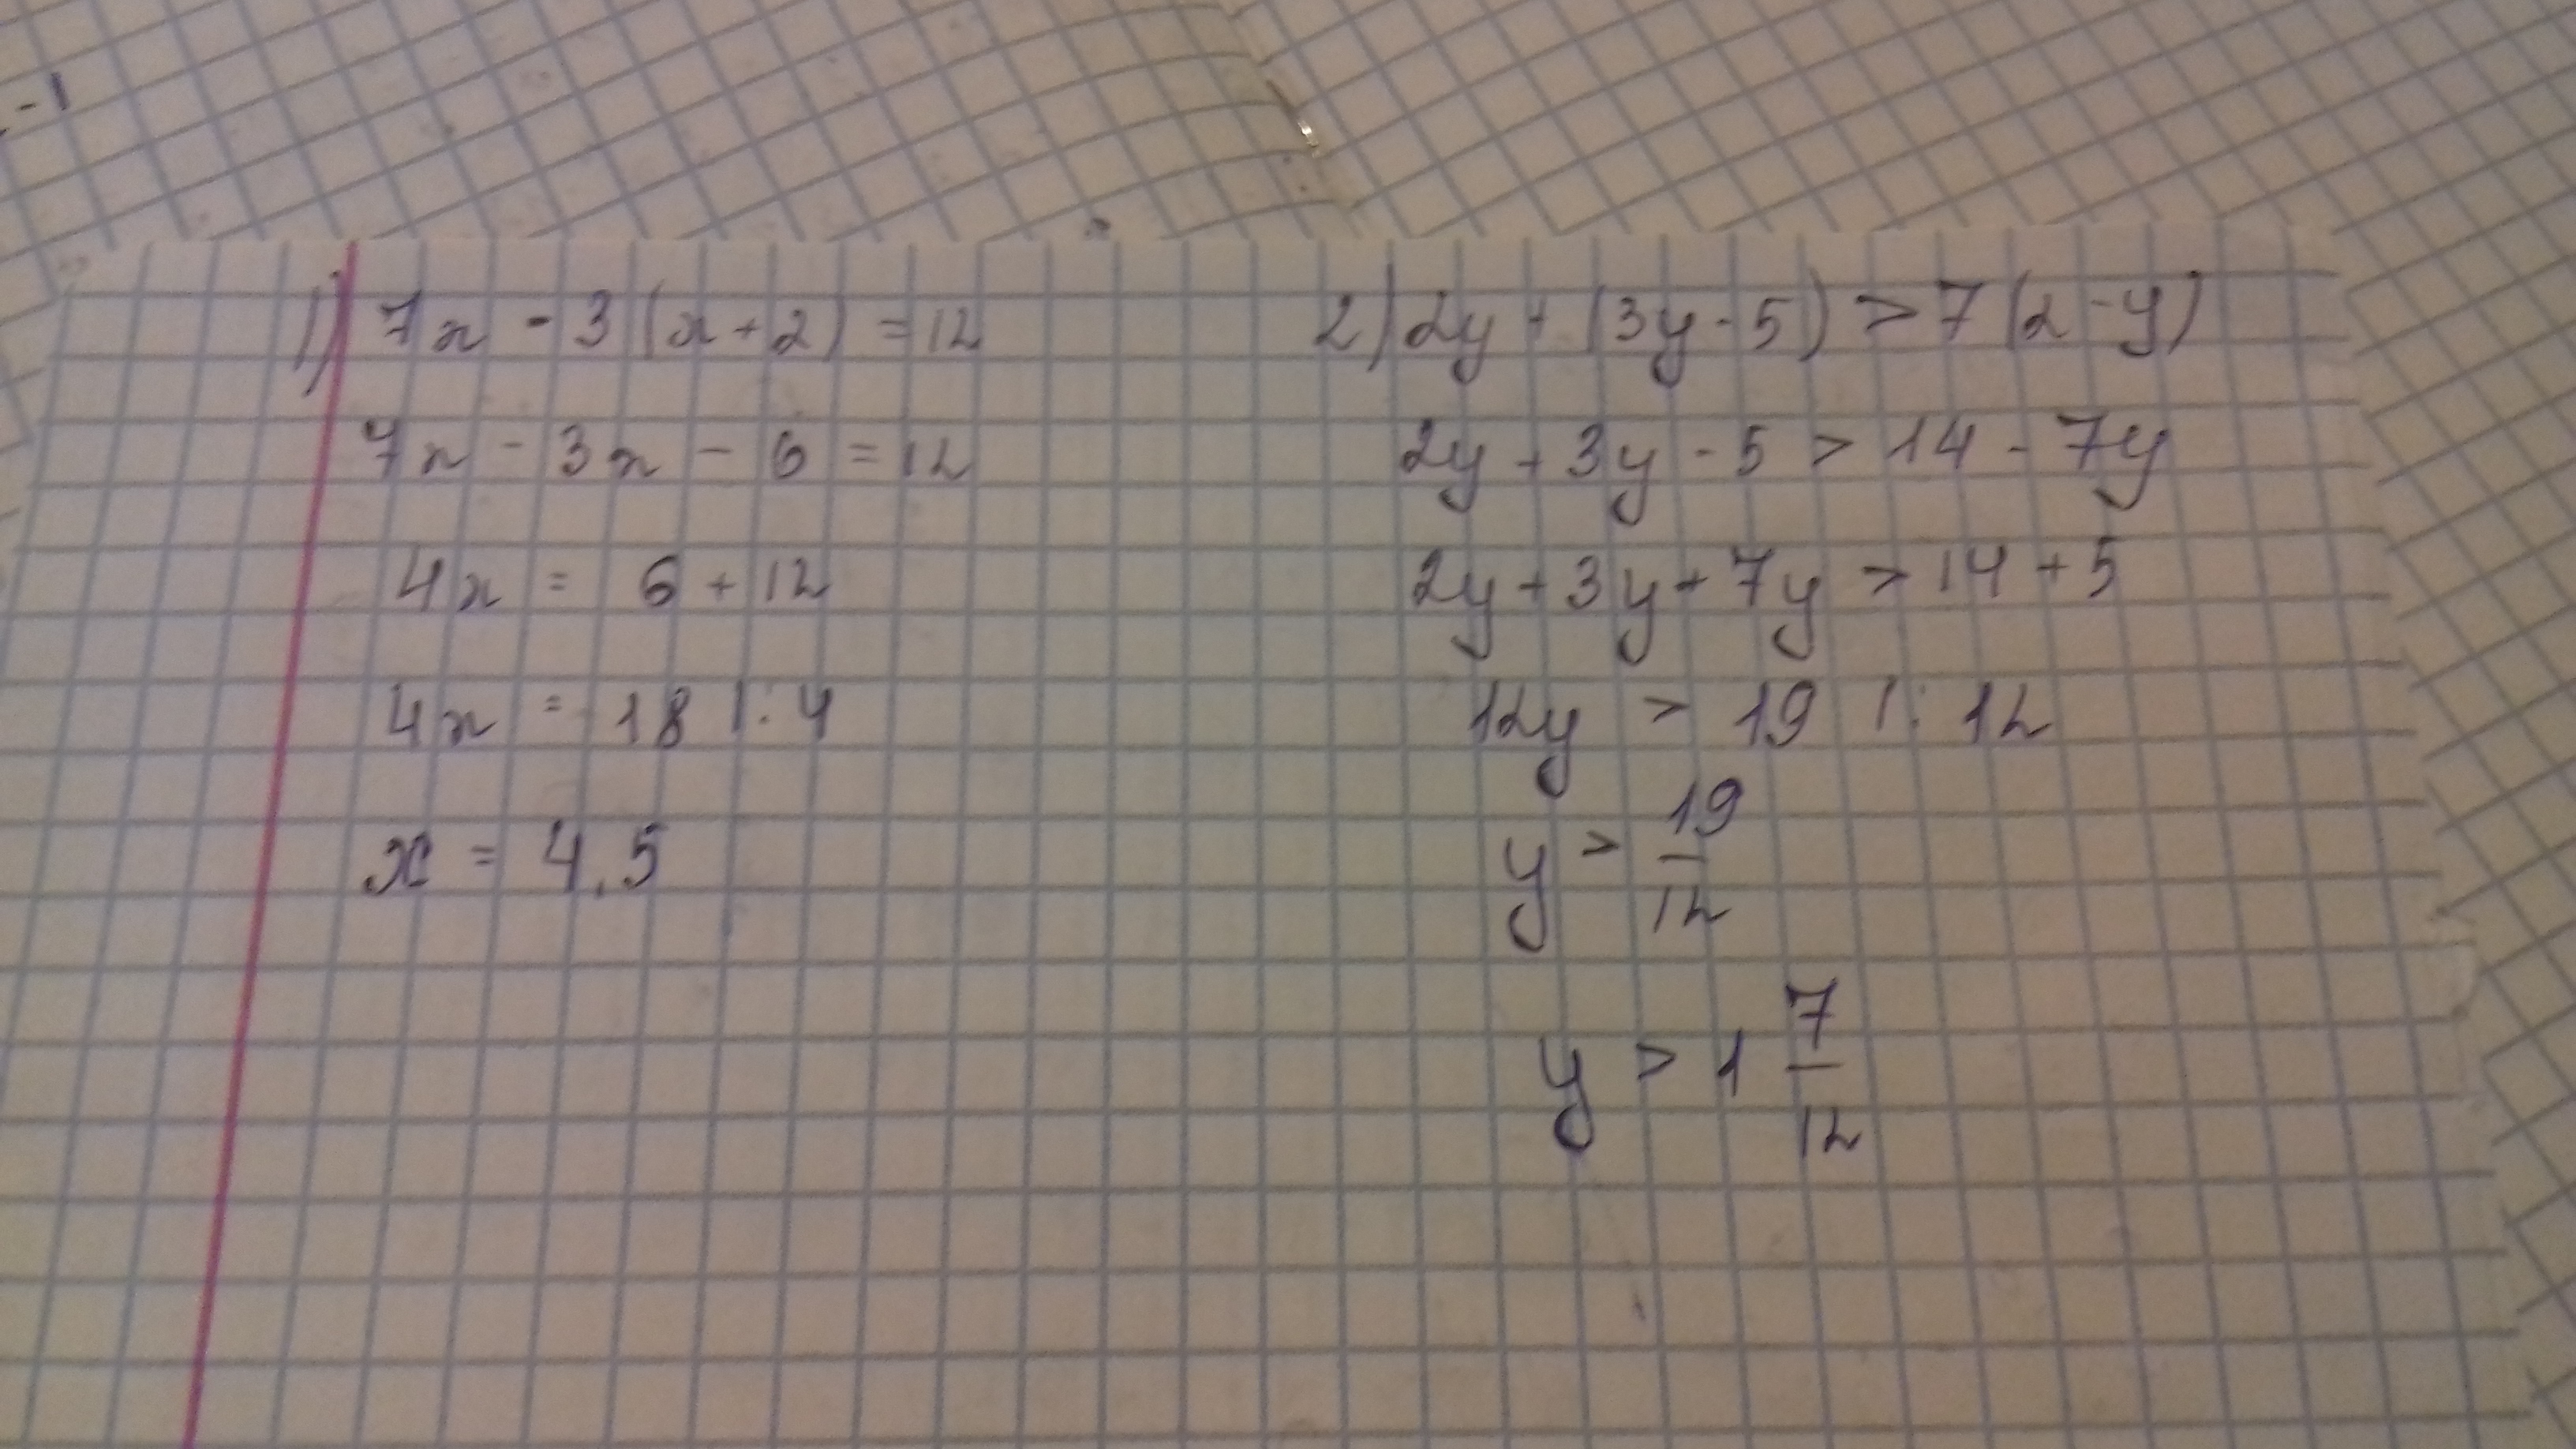 -1
1) 7x - 3(x+2) = 12
7x - 3x - 6 = 12
4x = 6 + 12
4x = 18 |: 4
x = 4,5
2) 2y + (3y - 5) > 7(2 - y)
2y + 3y - 5 > 14 - 7y
2y + 3y + 7y > 14 + 5
12y > 19 |: 12
y > 19/12
y > 1 7/12